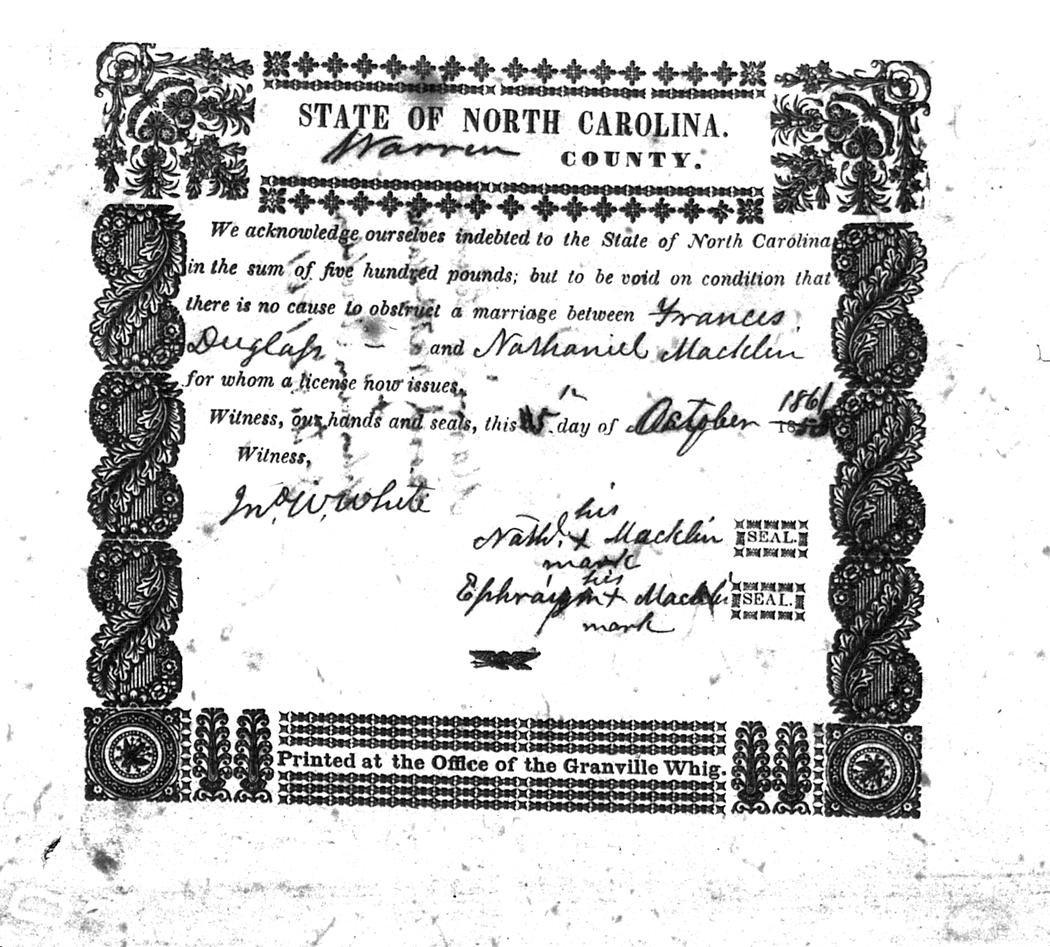 STATE OF NORTH CAROLINA.
Warren COUNTY.
We acknowledge ourselves indebted to the State of North Carolina
in the sum of five hundred pounds; but to be void on condition that
there is no cause to obstruct a marriage between Frances
Duglass and Nathaniel Macklin
for whom a license now issues.
Witness, our hands and seals, this 15 day of October 1861
Witness,
Jno. W. White
his
Nathl. x Macklin SEAL.
mark
his
Ephraim x Macklin SEAL.
mark
Printed at the Office of the Granville Whig.